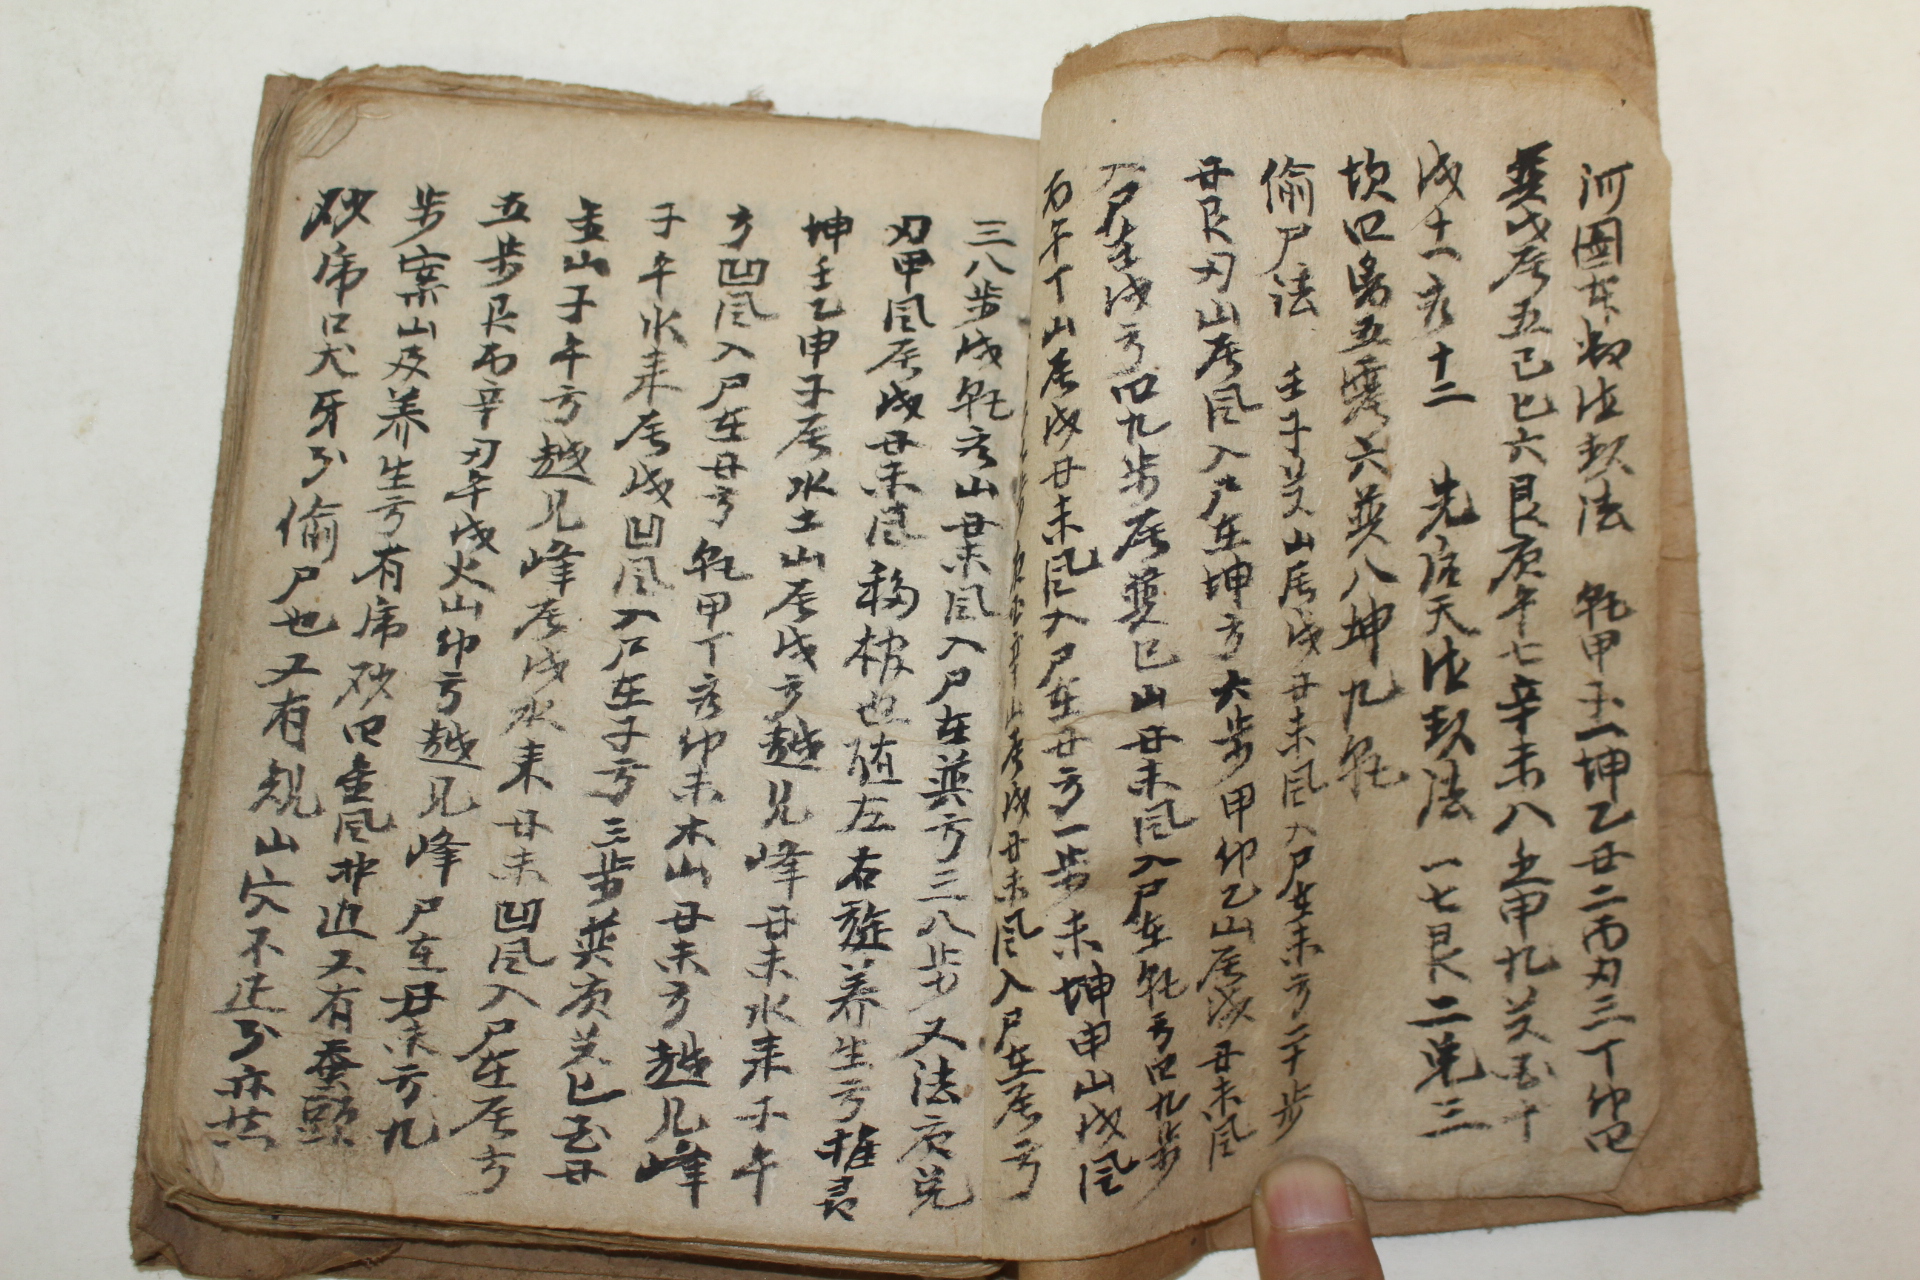 河圖本數法起法 乾甲子一坤乙丑二丙刃三丁卯四
巽戊辰五己巳六艮庚午七辛未八壬申九癸酉十
戌十一亥十二 先后天法起法 一七艮二兌三
坎四离五震六巽八坤九乾
偷尸法 壬子癸山辰戌丑未風入尸在未方二十步
丑艮刃山辰風入尸在坤方六步甲卯乙山辰戌丑未風
入尸在戌方四九步辰巽巳山丑未風入尸在乾方四九步
丙午丁山辰戌丑未風入尸在丑方一步未坤申山戌風
山辰戌丑未風入尸在辰方
三八步戌乾亥山丑未風入尸在巽方三八步又法庚兌
刃甲風辰戌丑未風移棺也随左右旋養生方推灵
坤壬乙申子辰水土山辰戌方越見峰丑未水來子午
方凹風入尸在丑方乾甲丁亥卯未木山丑未方越見峰
子午水來辰戌凹風入尸在子方三步巽庚癸巳酉丑
金山子午方越見峰辰戌水來丑未凹風入尸在辰方
五步艮丙辛刃午戌火山卯方越見峰尸在丑未方九
步案山及养生方有席砂四重風非迎又有蚕頭
砂席口犬牙分偷尸也又有規山穴不正分亦然